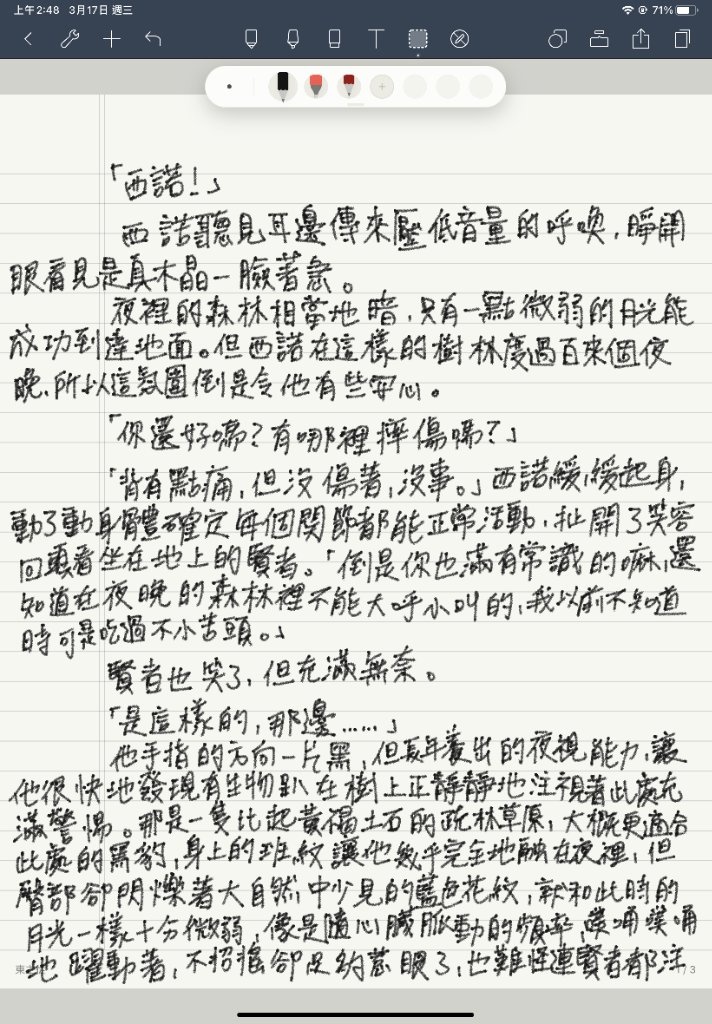 上午2:48 3月17日 週三
71%
「西諾！」
西諾聽見耳邊傳來壓低音量的呼喚，睜開
眼看見是真木晶一臉著急。
夜裡的森林相當地暗，只有一點微弱的月光能
成功到達地面。但西諾在這樣的樹林度過百來個夜
晚，所以這氛圍倒是令他有些安心。
「你還好嗎？有哪裡摔傷嗎？」
「背有點痛，但沒傷著，沒事。」西諾緩緩起身，
動了動身體確定每個關節都能正常活動，扯開了笑容
回頭看坐在地上的賢者。「倒是你也滿有常識的嘛，還
知道在夜晚的森林裡不能大呼小叫的，我以前不知道
時可是吃過不小苦頭。」
賢者也笑了，但充滿無奈。
「是這樣的，那邊……」
他手指的方向一片黑，但長年養出的夜視能力，讓
他很快地發現有生物趴在樹上正靜靜地注視著此處充
滿警惕。那是一隻比起黃褐土石的疏林草原，大概更適合
此處的黑豹，身上的斑紋讓他幾乎完全地融在夜裡，但
臀部卻閃爍著大自然中少見的藍色花紋，就和此時的
月光一樣十分微弱，像是隨心臟脈動的頻率，噗通噗通
地躍動著，不招搖卻足夠惹眼了，也難怪連賢者都注
東
1/3